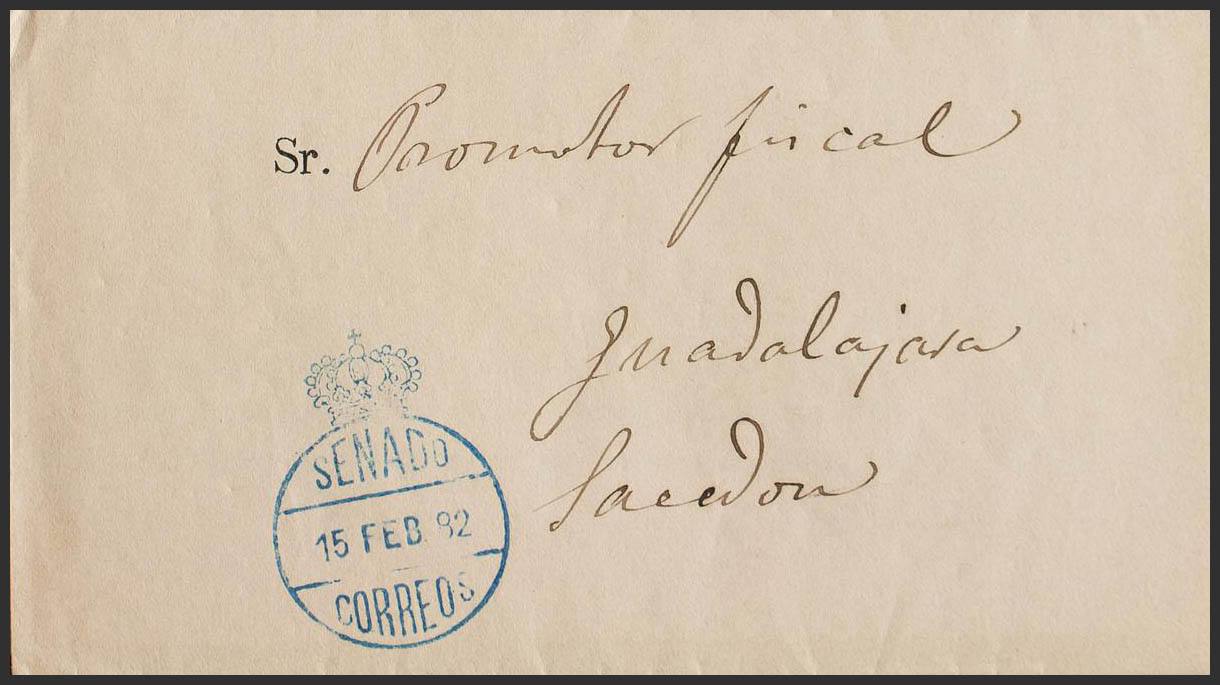 Sr. Promotor fiscal
Guadalajara
Sacedon
SENADO
15 FEB. 82
CORREOS